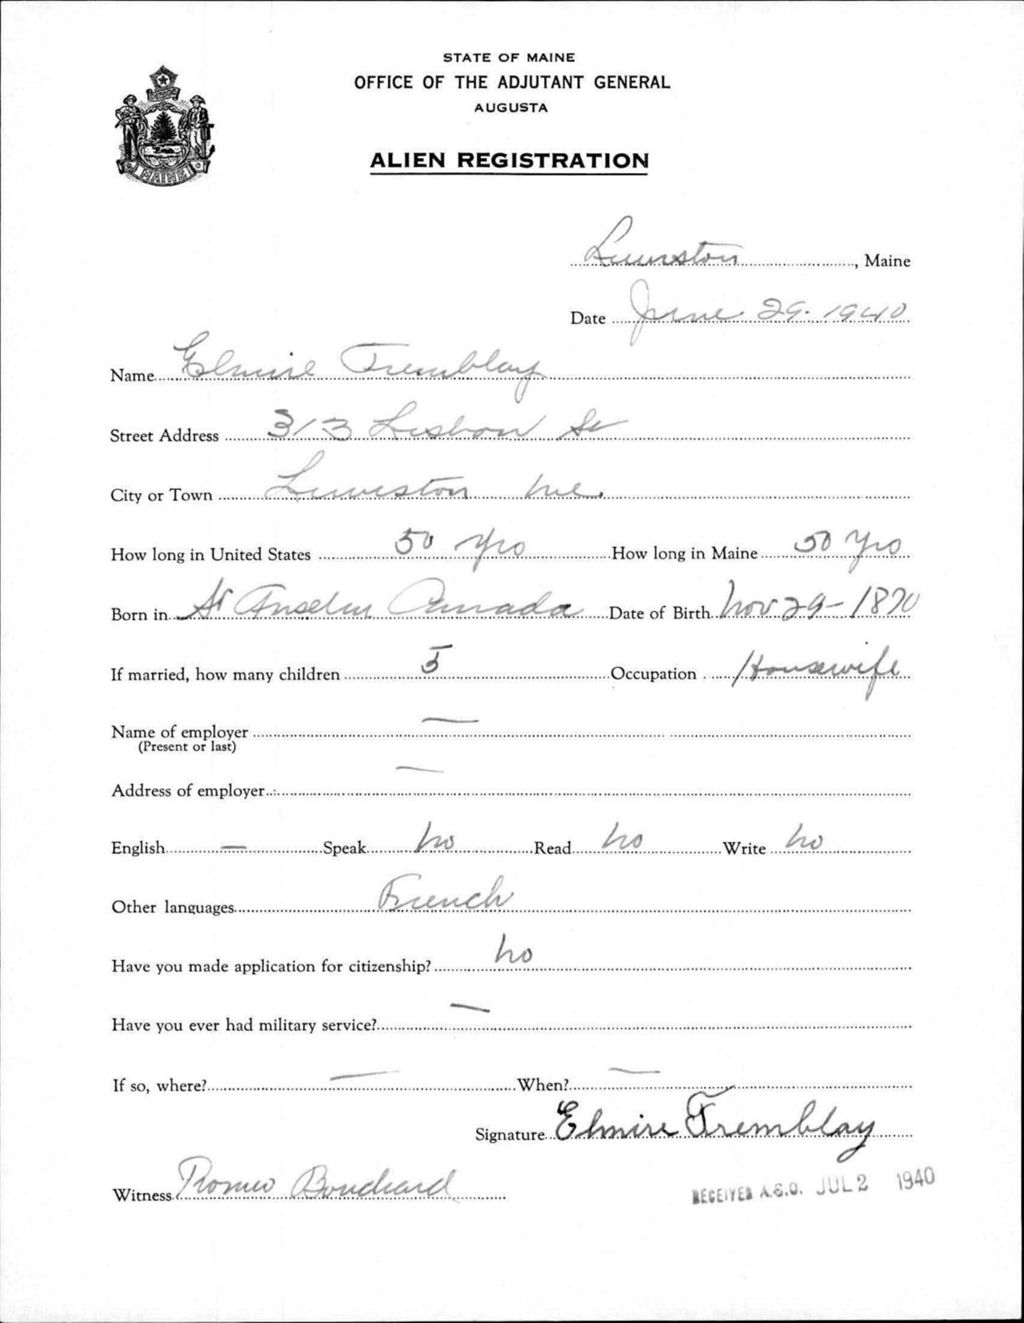 STATE OF MAINE
OFFICE OF THE ADJUTANT GENERAL
AUGUSTA
ALIEN REGISTRATION
MAINE
Lewiston, Maine
Date June 29. 1940
Name Elmire Tremblay
Street Address 313 Lisbon St
City or Town Lewiston Me.
How long in United States 50 yrs How long in Maine 50 yrs
Born in St Anselm Canada Date of Birth Nov 29 - 1870
If married, how many children 5 Occupation Housewife
Name of employer —
(Present or last)
Address of employer —
English — Speak No Read No Write No
Other languages French
Have you made application for citizenship? No
Have you ever had military service? —
If so, where? — When? —
Signature Elmire Tremblay
Witness Romeo Bouchard
RECEIVED A.G.O. JUL 2 1940